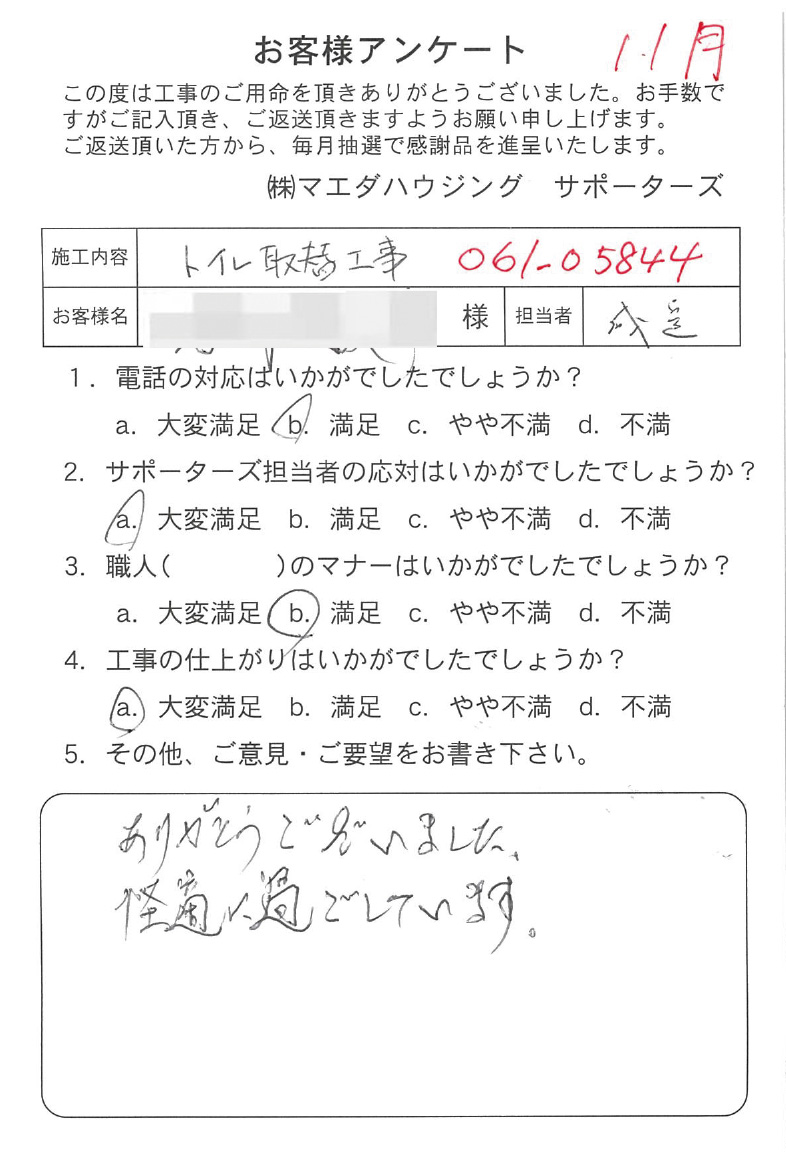 お客様アンケート 11月
この度は工事のご用命を頂きありがとうございました。お手数で
すがご記入頂き、ご返送頂きますようお願い申し上げます。
ご返送頂いた方から、毎月抽選で感謝品を進呈いたします。
㈱マエダハウジング サポーターズ
施工内容 トイレ取替工事 061-05844
お客様名 様 担当者
1. 電話の対応はいかがでしたでしょうか？
a. 大変満足 b. 満足 c. やや不満 d. 不満
2. サポーターズ担当者の応対はいかがでしたでしょうか？
a. 大変満足 b. 満足 c. やや不満 d. 不満
3. 職人( )のマナーはいかがでしたでしょうか？
a. 大変満足 b. 満足 c. やや不満 d. 不満
4. 工事の仕上がりはいかがでしたでしょうか？
a. 大変満足 b. 満足 c. やや不満 d. 不満
5. その他、ご意見・ご要望をお書き下さい。
ありがとうございました、
怪適に過ごしています。